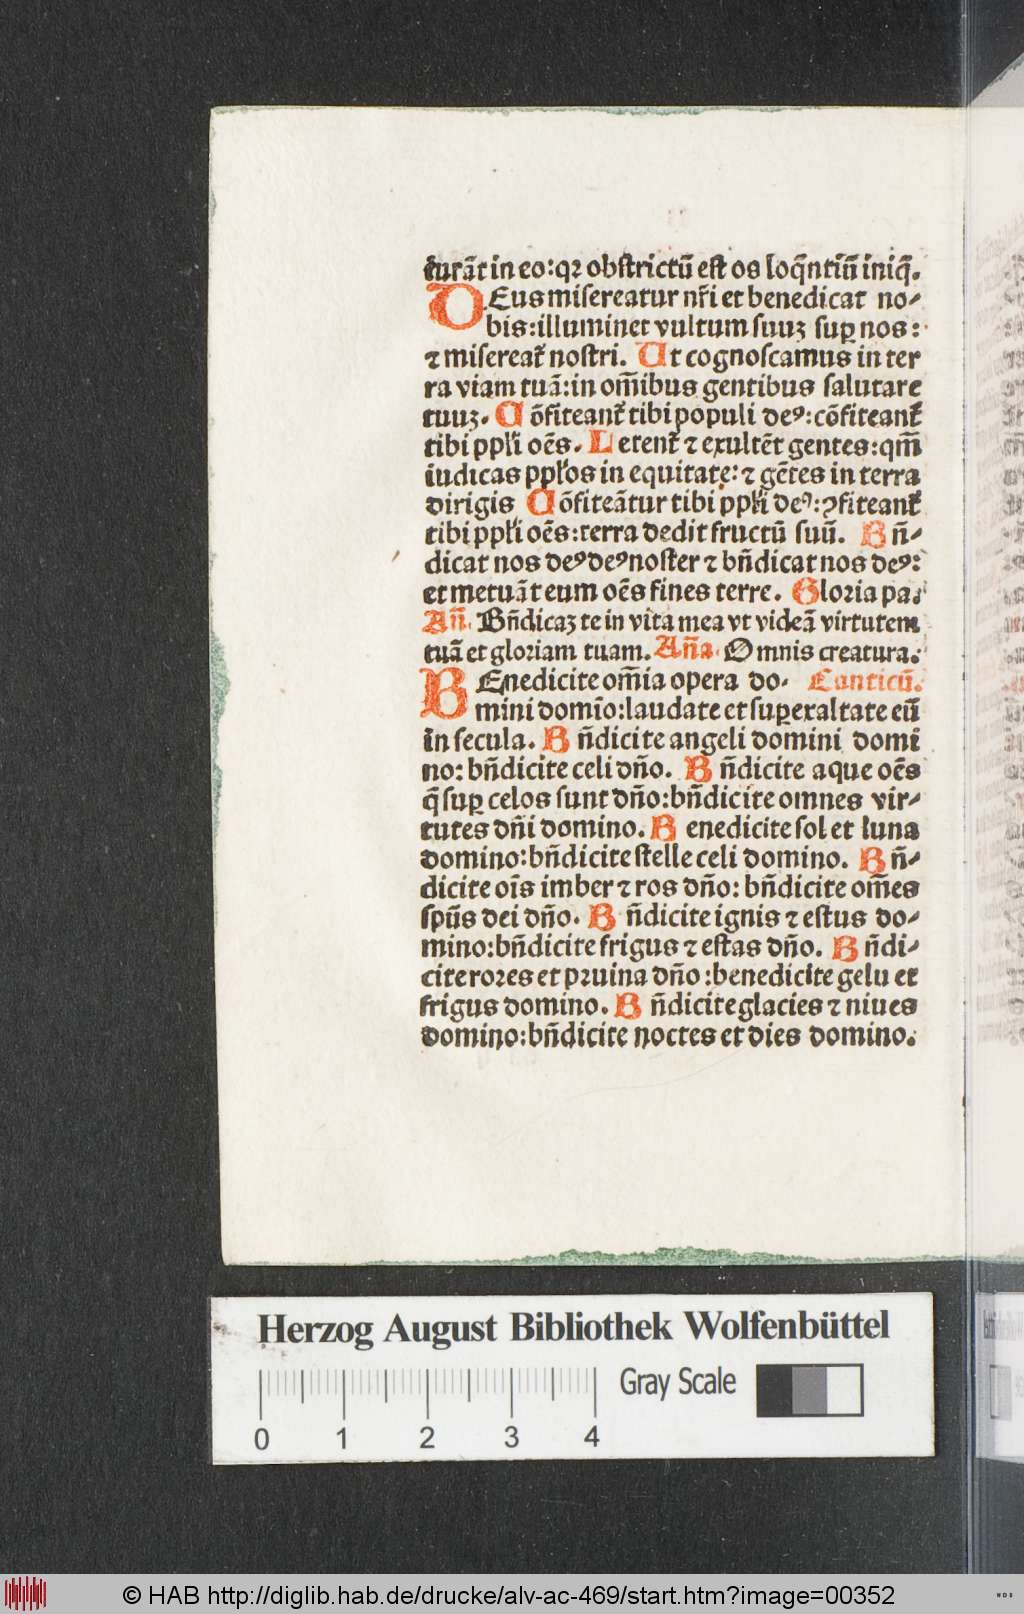 turāt in eo: qꝛ obstrictū est os loq̄ntiū iniq̄.
DEus misereatur nr̄i et benedicat no⸗
bis: illuminet vultum suuꝫ suꝑ nos:
⁊ misereat᷑ nostri. Ut cognoscamus in ter
ra viam tuā: in om̄ibus gentibus salutare
tuuꝫ. Cōfiteant᷑ tibi populi deꝰ: cōfiteant᷑
tibi ppl̓i oēs. Letent᷑ ⁊ exultēt gentes: qm̄
iudicas ppl̓os in equitate: ⁊ gētes in terra
dirigis Cōfiteātur tibi ppl̓i deꝰ: ꝯfiteant᷑
tibi ppl̓i oēs: terra dedit fructū suū. Bn̄⸗
dicat nos deꝰ deꝰ noster ⁊ bn̄dicat nos deꝰ:
et metuāt eum oēs fines terre. Gloria pa.
An̄. Bn̄dicaꝫ te in vita mea vt videā virtutem
tuā et gloriam tuam. Añа. Omnis creatura.
BEnedicite om̄ia opera do- Canticū.
mini domīo: laudate et suꝑexaltate eū
in secula. Bn̄dicite angeli domini domi
no: bn̄dicite celi dn̄o. Bn̄dicite aque oēs
q̄ suꝑ celos sunt dn̄o: bn̄dicite omnes vir⸗
tutes dn̄i domino. Benedicite sol et luna
domino: bn̄dicite stelle celi domino. Bn̄⸗
dicite oīs imber ⁊ ros dn̄o: bn̄dicite om̄es
spūs dei dn̄o. Bn̄dicite ignis ⁊ estus do⸗
mino: bn̄dicite frigus ⁊ estas dn̄o. Bn̄di⸗
cite rores et pruina dn̄o: benedicite gelu et
frigus domino. Bn̄dicite glacies ⁊ niues
domino: bn̄dicite noctes et dies domino.
Herzog August Bibliothek Wolfenbüttel
Gray Scale
0 1 2 3 4
© HAB http://diglib.hab.de/drucke/alv-ac-469/start.htm?image=00352